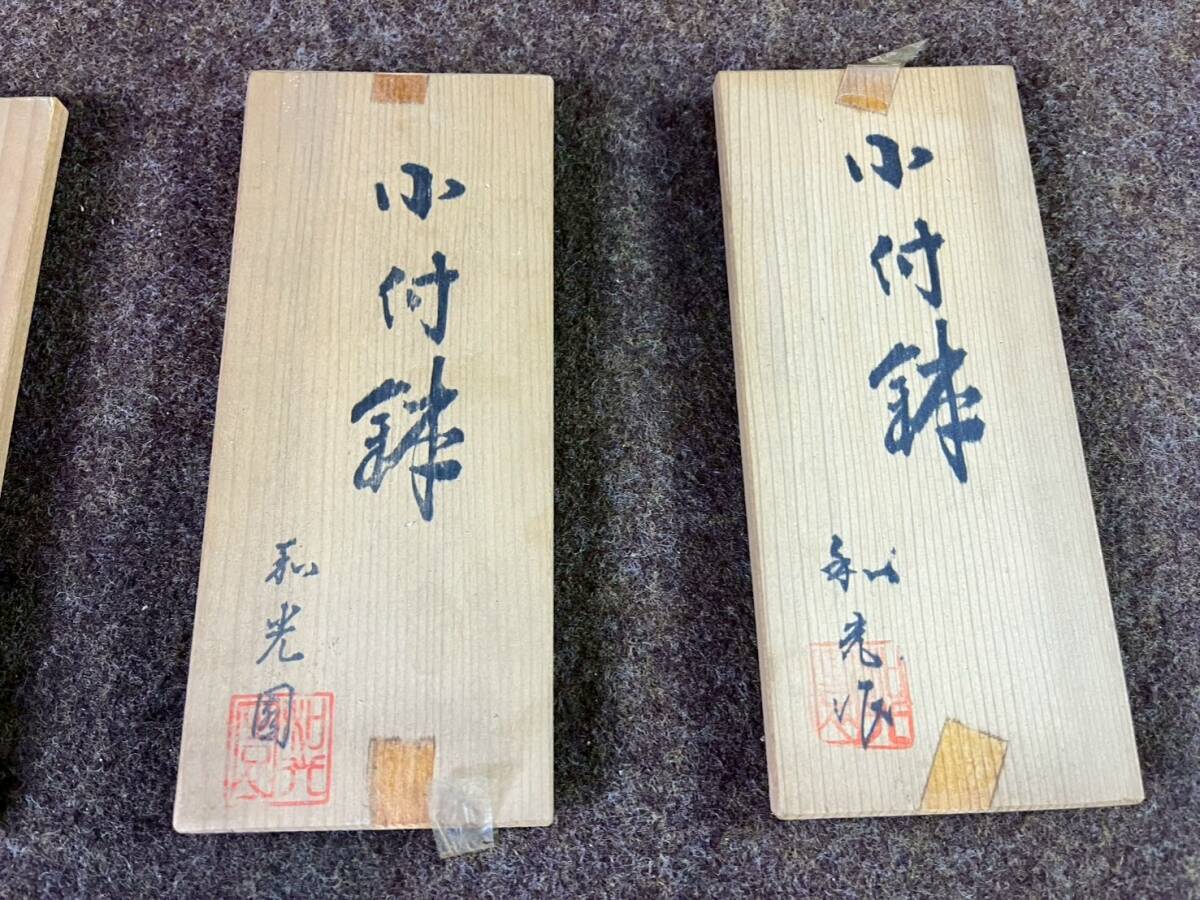 小付鉢
和光園
小付鉢
和光作